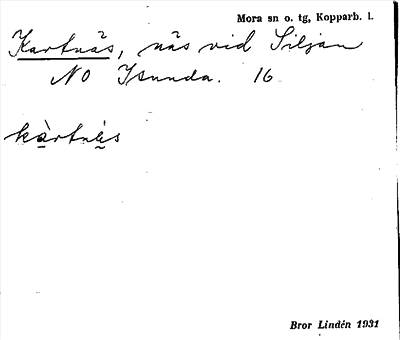 Mora sn o. tg, Kopparb. l.
Kartnäs, näs vid Siljan
NO Isunda. 16
kàrtnès
Bror Lindén 1931